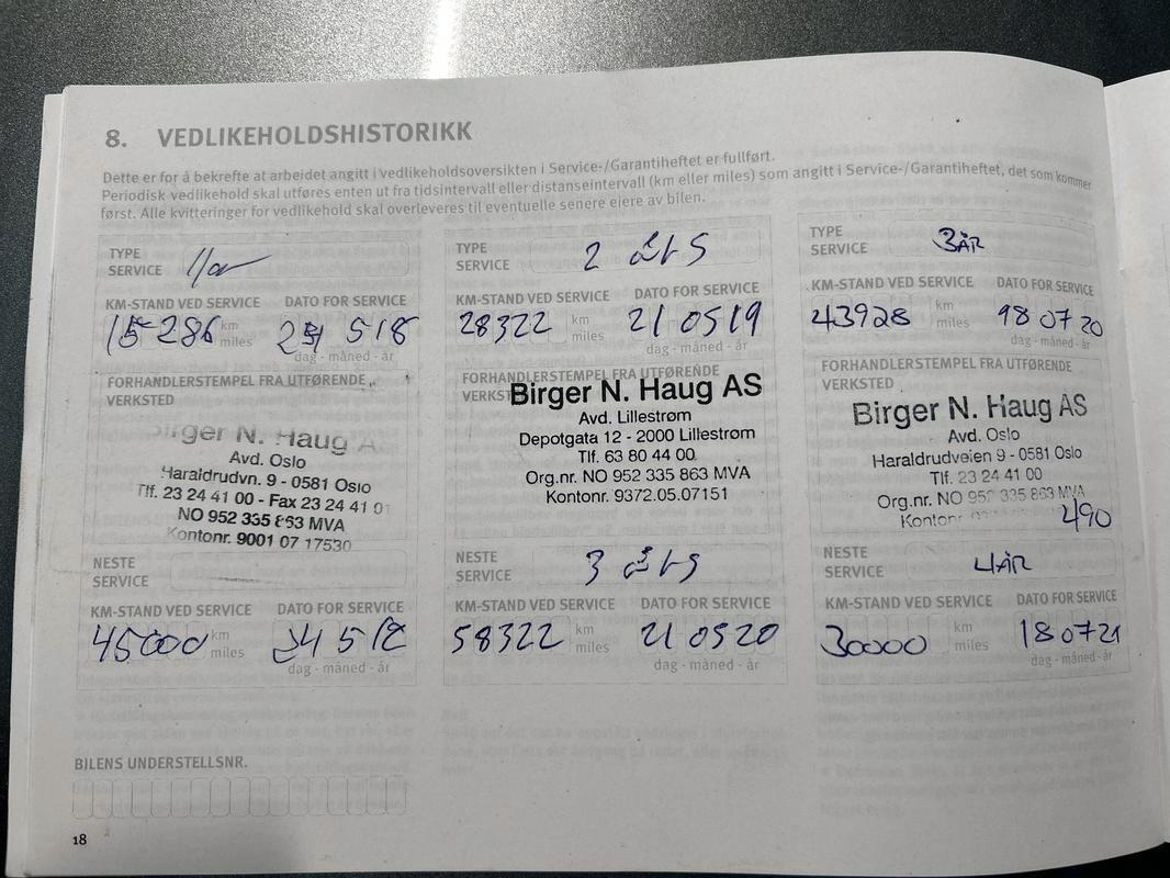 8. VEDLIKEHOLDSHISTORIKK
Dette er for å bekrefte at arbeidet angitt i vedlikeholdsoversikten i Service-/Garantiheftet er fullført.
Periodisk vedlikehold skal utføres enten ut fra tidsintervall eller distanseintervall (km eller miles) som angitt i Service-/Garantiheftet, det som kommer
først. Alle kvitteringer for vedlikehold skal overleveres til eventuelle senere eiere av bilen.
TYPE
SERVICE
KM-STAND VED SERVICE DATO FOR SERVICE
15 286 km
miles
518
dag - måned - år
FORHANDLERSTEMPEL FRA UTFØRENDE
VERKSTED
Birger N. Haug A
Avd. Oslo
Haraldrudvn. 9 - 0581 Oslo
Tlf. 23 24 41 00 - Fax 23 24 41 01
NO 952 335 863 MVA
Kontonr. 9001 07 17530
NESTE
SERVICE
KM-STAND VED SERVICE DATO FOR SERVICE
45000 km
miles
dag - måned - år
TYPE
SERVICE 2 årS
KM-STAND VED SERVICE DATO FOR SERVICE
28322 km
miles
21 05 19
dag - måned - år
FORHANDLERSTEMPEL FRA UTFØRENDE
VERKST
Birger N. Haug AS
Avd. Lillestrøm
Depotgata 12 - 2000 Lillestrøm
Tlf. 63 80 44 00
Org.nr. NO 952 335 863 MVA
Kontonr. 9372.05.07151
NESTE
SERVICE 3 årS
KM-STAND VED SERVICE DATO FOR SERVICE
58322 km
miles
21 05 20
dag - måned - år
TYPE
SERVICE 3ÅR
KM-STAND VED SERVICE DATO FOR SERVICE
43928 km
miles
18 07 20
dag - måned - år
FORHANDLERSTEMPEL FRA UTFØRENDE
VERKSTED
Birger N. Haug AS
Avd. Oslo
Haraldrudveien 9 - 0581 Oslo
Tlf. 23 24 41 00
Org.nr. NO 952 335 863 MVA
Kontonr
490
NESTE
SERVICE 4ÅR
KM-STAND VED SERVICE DATO FOR SERVICE
30000 km
miles
18 07 21
dag - måned - år
BILENS UNDERSTELLSNR.
18